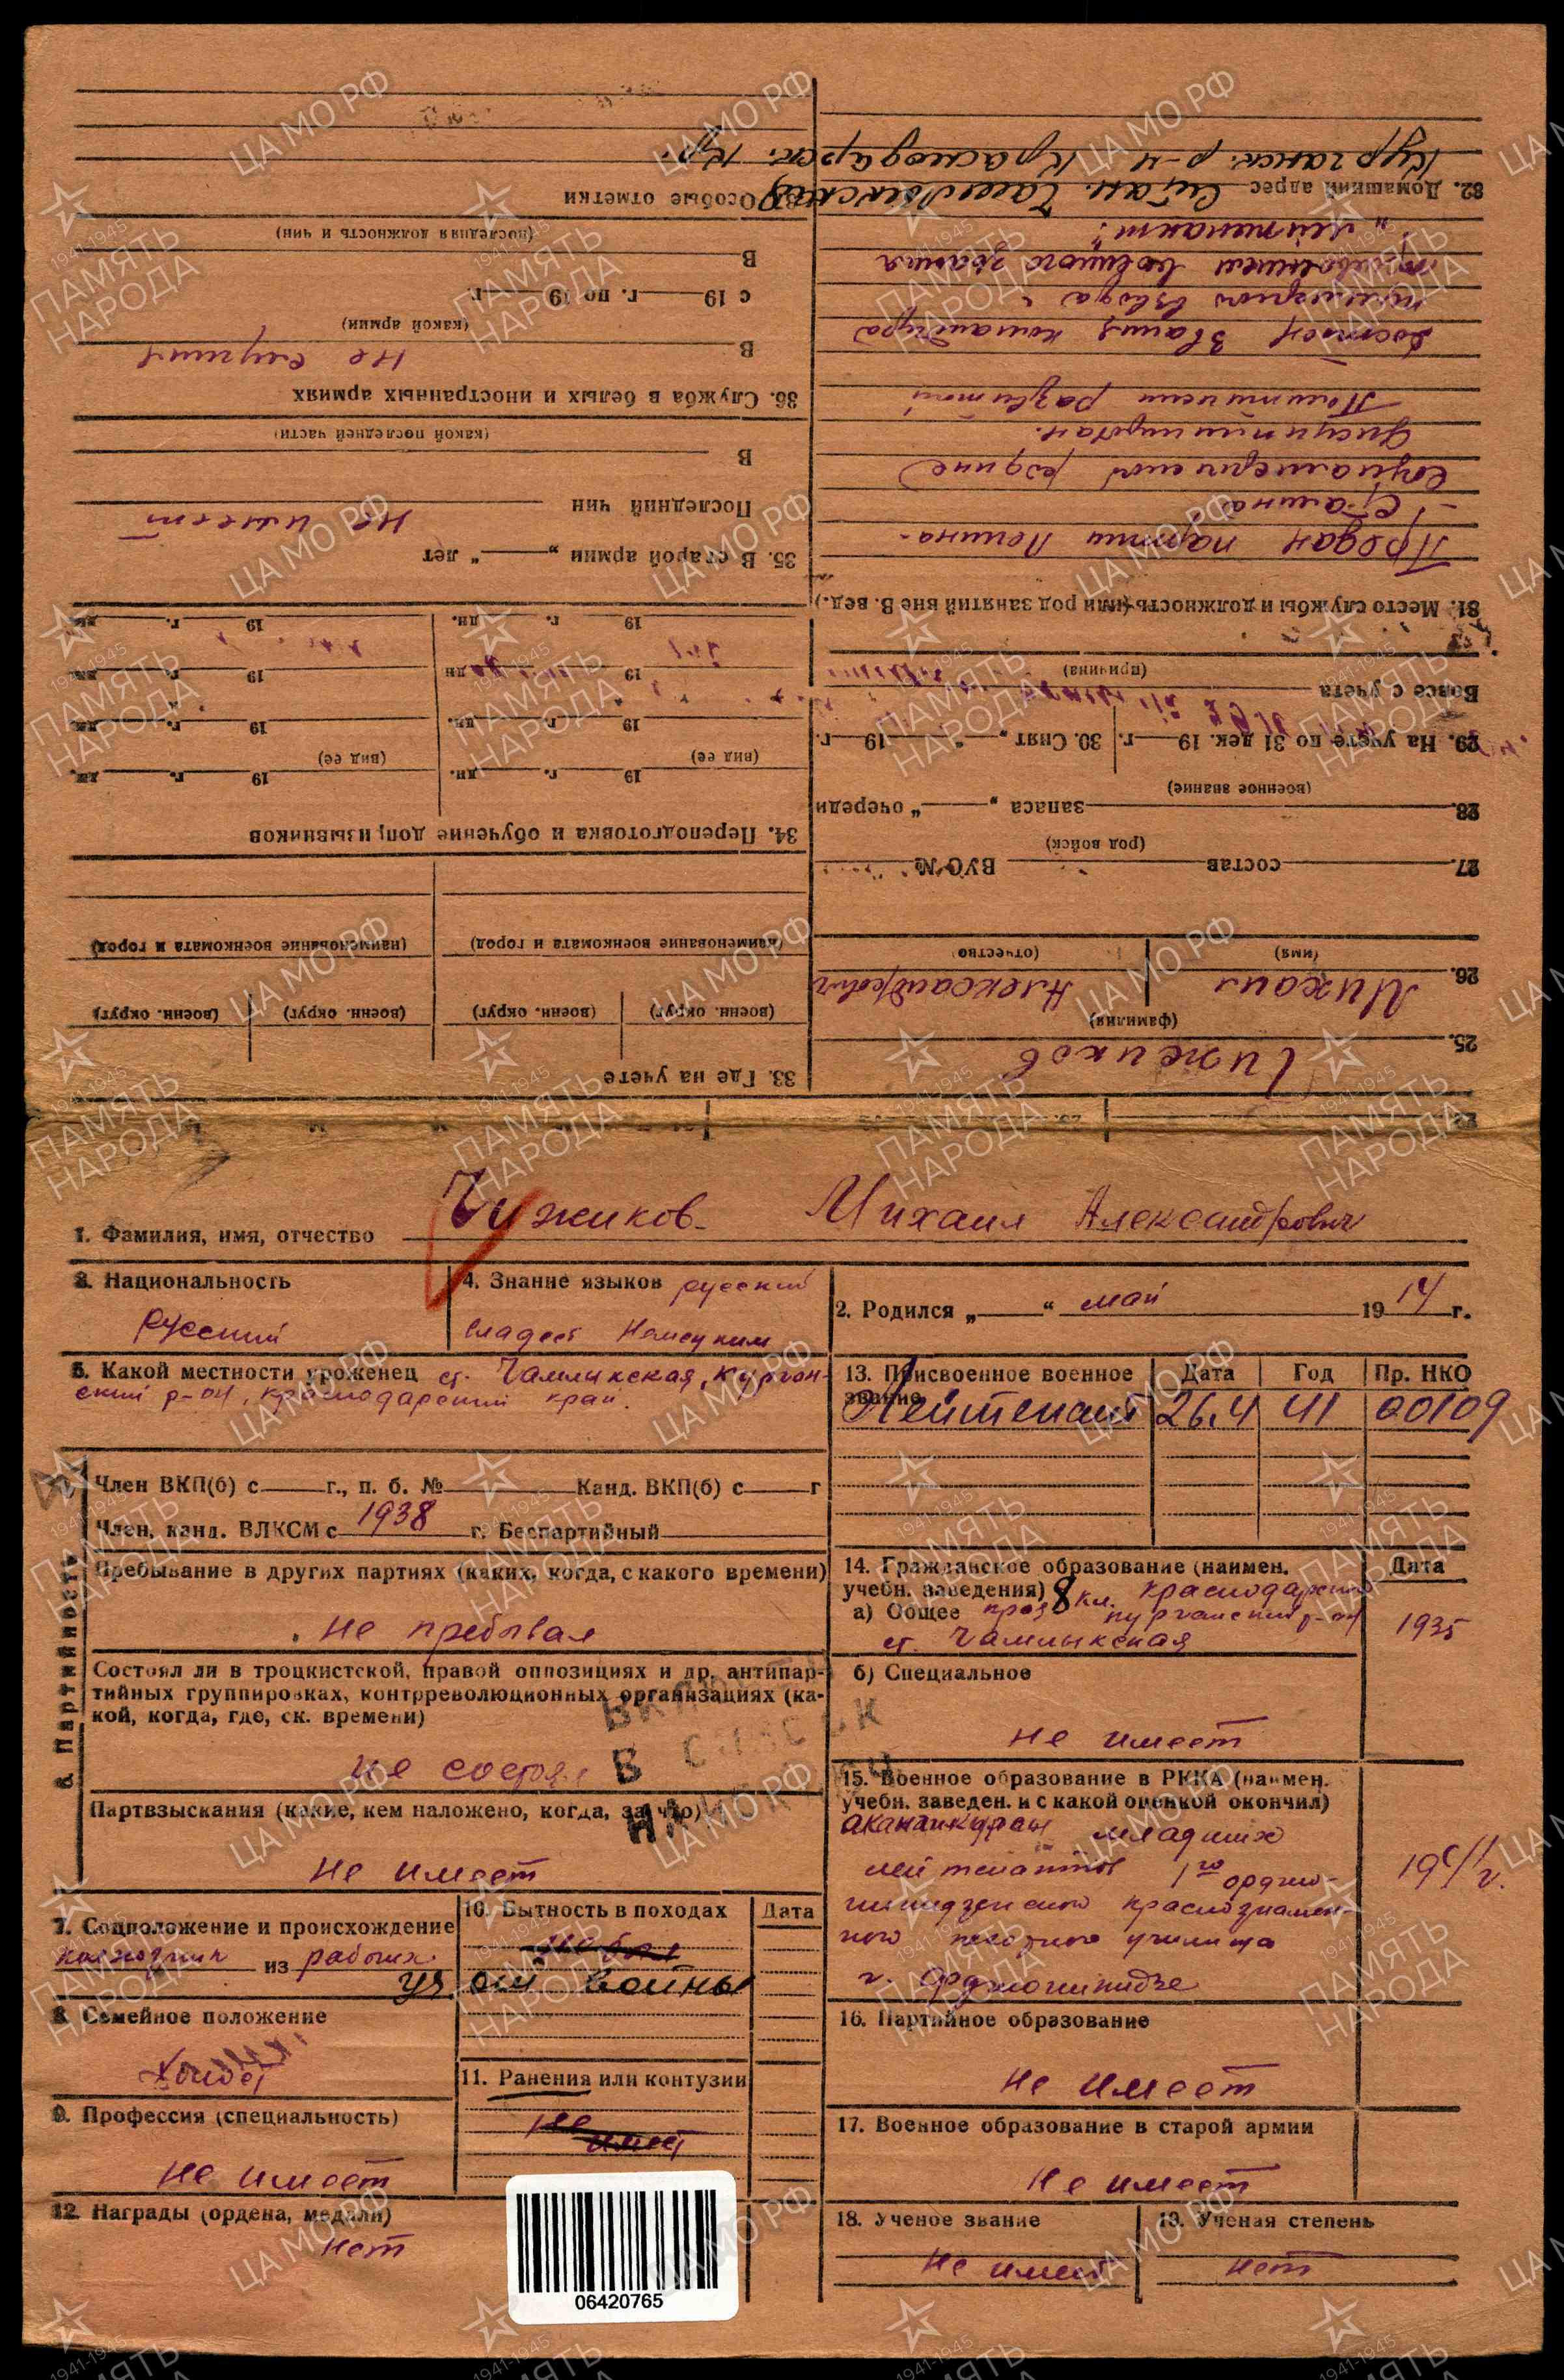 1. Фамилия, имя, отчество Чужиков Михаил Александрович
3. Национальность
русский
4. Знание языков русский
владеет Немецким
2. Родился „ “ май 1914 г.
5. Какой местности уроженец ст. Чамлыкская, Курган-
ский р-он, краснодарский край.
13. Присвоенное военное звание
Дата
Год
Пр. НКО
Лейтенант 26.4 41 00109
6. Партийность
Член ВКП(б) с г., п. б. № Канд. ВКП(б) с г
Член, канд. ВЛКСМ с 1938 г. Беспартийный
Пребывание в других партиях (каких, когда, с какого времени)
не пребывал
Состоял ли в троцкистской, правой оппозициях и др. антипар-
тийных группировках, контрреволюционных организациях (ка-
кой, когда, где, ск. времени)
не состоял
Партвзыскания (какие, кем наложено, когда, за что)
Не имеет
14. Гражданское образование (наимен.
учебн. заведения)
Дата
а) Общее 8 кл. Краснодарский
курганский р-он
ст. Чамлыкская
1935
б) Специальное
не имеет
15. Военное образование в РККА (наимен.
учебн. заведен. и с какой оценкой окончил)
младших
лейтенантов 1го орджо-
никидзенского краснознамен-
ного пехотного училища
г. Орджоникидзе
1941 г.
7. Соцположение и происхождение
колхозник из рабочих
8. Семейное положение
холост
9. Профессия (специальность)
не имеет
10. Бытность в походах
Дата
не был
уч. от. войны
11. Ранения или контузии
не
имеет
12. Награды (ордена, медали)
нет
16. Партийное образование
не имеет
17. Военное образование в старой армии
Не имеет
18. Ученое звание
Не имеет
19. Ученая степень
нет
06420765
ВКЛЮЧЕН
В СПИСОК
НА
25. Чужиков
(фамилия)
26. Михаил Александрович
(имя)
(отчество)
27. состав ВУС №
(род войск)
28. запаса „ “ очереди
(военное звание)
29. На учете по 31 дек. 19 г.
30. Снят „ “ 19 г.
Вовсе с учета
(причина)
31. Место службы и должность (или род занятий вне В. вед.)
Предан партии Ленина-
-Сталина
Социалистической родине
Дисциплинирован.
Политически развитой
Достоен звания командира
пехотного взвода с
присвоением военного звания
„лейтенант“.
32. Домашний адрес Стан. Чамлыкская
Курганск. р-н Краснодарск. кр.
33. Где на учете
(воен. округ)
(воен. округ)
(воен. округ)
(воен. округ)
(наименование военкомата и город)
(наименование военкомата и город)
34. Переподготовка и обучение доп. призывников
19 г. дн.
19 г. дн.
(вид ее)
(вид ее)
19 г. дн.
19 г. дн.
19 г. дн.
19 г. дн.
19 г. дн.
19 г. дн.
35. В старой армии „ “ лет
Не имеет
Последний чин
В
(какой последней части)
36. Служба в белых и иностранных армиях
Не служил
В
(какой армии)
с 19 г. по 19 г.
В
(последняя должность и чин)
37. Особые отметки
ЦА МО РФ
1941-1945
ПАМЯТЬ
НАРОДА